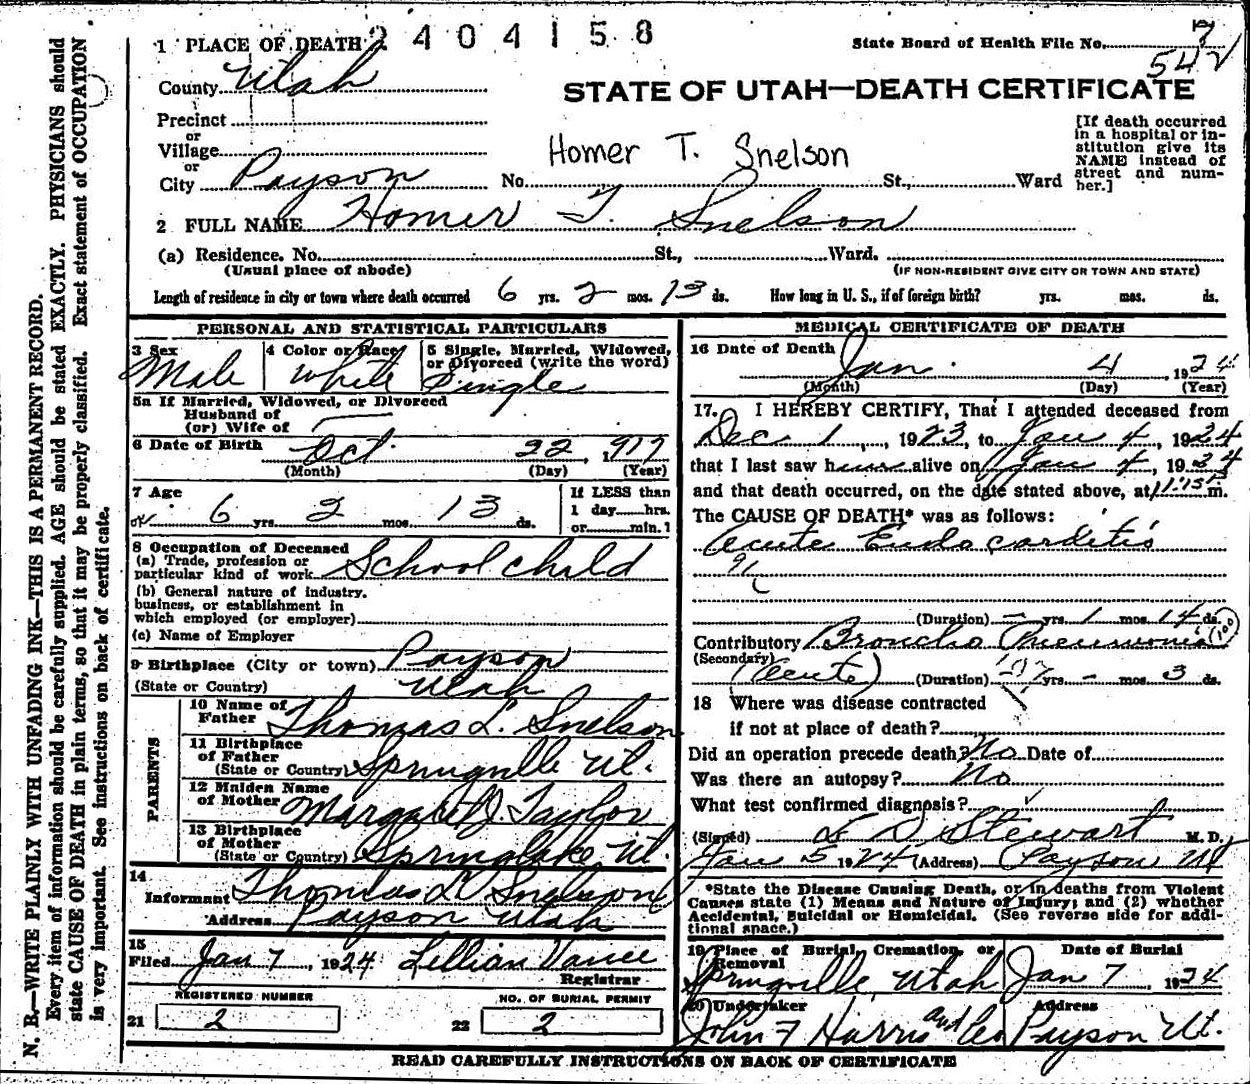 2404158
1 PLACE OF DEATH
State Board of Health File No. 7
542
County Utah
STATE OF UTAH—DEATH CERTIFICATE
Precinct
or
Village
or
City Payson No. St., Ward
Homer T. Snelson
[If death occurred
in a hospital or in-
stitution give its
NAME instead of
street and num-
ber.]
2 FULL NAME Homer T. Snelson
(a) Residence. No. St., Ward.
(Usual place of abode) (IF NON-RESIDENT GIVE CITY OR TOWN AND STATE)
Length of residence in city or town where death occurred 6 yrs. 2 mos. 13 ds. How long in U. S., if of foreign birth? yrs. mos. ds.
PERSONAL AND STATISTICAL PARTICULARS
3 Sex Male
4 Color or Race White
5 Single, Married, Widowed,
or Divorced (write the word)
Single
5a If Married, Widowed, or Divorced
Husband of
(or) Wife of
6 Date of Birth Oct. 22, 1917
(Month) (Day) (Year)
7 Age
6 yrs. 2 mos. 13 ds.
If LESS than
1 day hrs.
or min.1
8 Occupation of Deceased
(a) Trade, profession or
particular kind of work School child
(b) General nature of industry.
business, or establishment in
which employed (or employer)
(c) Name of Employer
9 Birthplace (City or town) Payson
(State or Country) Utah
PARENTS
10 Name of
Father Thomas L. Snelson
11 Birthplace
of Father
(State or Country) Springville Ut.
12 Maiden Name
of Mother Margaret J. Taylor
13 Birthplace
of Mother
(State or Country) Springlake, Ut.
14
Informant Thomas L. Snelson
Address Payson Utah
15
Filed Jan 7, 1924 Lillian Vance
Registrar
REGISTERED NUMBER
21 2
NO. OF BURIAL PERMIT
22 2
MEDICAL CERTIFICATE OF DEATH
16 Date of Death Jan. 4 1924
(Month) (Day) (Year)
17. I HEREBY CERTIFY, That I attended deceased from
Dec 1, 1923, to Jan 4, 1924
that I last saw him alive on Jan 4, 1924
and that death occurred, on the date stated above, at 11:15 P m.
The CAUSE OF DEATH* was as follows:
Acute Endocarditis
91
(Duration) - yrs. 1 mos. 14 ds.
Contributory Broncho Pneumonia (100)
(Secondary)
(Acute) (Duration) - yrs. - mos. 3 ds.
18 Where was disease contracted
if not at place of death?
Did an operation precede death? No Date of
Was there an autopsy? No
What test confirmed diagnosis?
(Signed) L D Stewart M. D.
Jan 5 1924 (Address) Payson Ut
*State the Disease Causing Death, or in deaths from Violent
Causes state (1) Means and Nature of Injury; and (2) whether
Accidental, Suicidal or Homicidal. (See reverse side for addi-
tional space.)
19 Place of Burial, Cremation, or
Removal
Springville, Utah
Date of Burial
Jan 7, 1924
20 Undertaker
John F Harris and Co
Address
Payson Ut.
READ CAREFULLY INSTRUCTIONS ON BACK OF CERTIFICATE
N. B.—WRITE PLAINLY WITH UNFADING INK—THIS IS A PERMANENT RECORD.
Every item of information should be carefully supplied. AGE should be stated EXACTLY. PHYSICIANS should
state CAUSE OF DEATH in plain terms, so that it may be properly classified. Exact statement of OCCUPATION
is very important. See instructions on back of certificate.